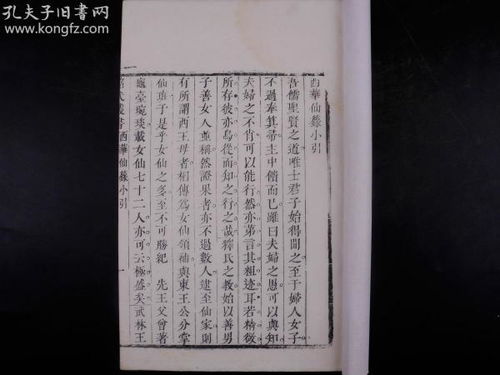 孔夫子旧书网
www.kongfz.com
西華仙籙小引
吾儒聖賢之道唯士君子始得聞之至于婦人女子
不過奉其帚主中饋而已雖曰夫婦之愚可以與知
夫婦之不肖可以能行然亦第言其粗迹耳若精微
所存彼亦烏從而知之行之哉釋氏之教始以善男
子善女人並稱然證果者亦不過數人逮至仙家則
有所謂西王母者相傳為女仙領袖與東王公分掌
仙班于是乎女仙之多至不可勝紀　先王父曾著
龜臺琬琰載女仙七十二人亦可云極盛矣武林王
西華仙籙小引
一